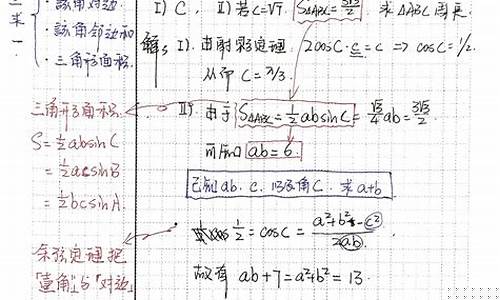 求一
· 該角对边
· 該角邻边和
· 三角形面积
I) C, II) 若c=√7, S△ABC = 3√3/2 求△ABC周长
解: I). 由射影定理 2cosC·c = c ⇒ cosC = 1/2.
从而 C = π/3.
三角形面积
S = 1/2 absinC
= 1/2 acsinB
= 1/2 bcsinA.
II). 由于 S△ABC = 1/2 absinC = √3/4 ab = 3√3/2.
ab = 6.
已知 ab. c. 以及角C. 求 a+b
余弦定理把
「直角」与「对边」
1/2 = cosC = (a²+b²-c²)/2ab.
故有 ab+7 = a²+b² = 13.